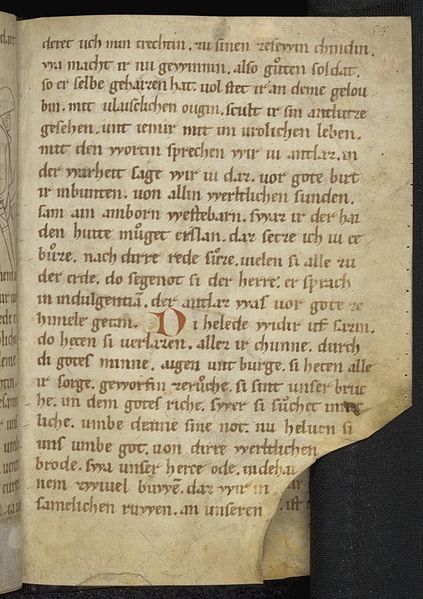 deret uch mın trechtın. zu sınen zesewın chındın.
wa macht ır nu gewınnın. also gůten soldat.
so er selbe geheızen hat. uol stet ır an deme gelou
bın. mıt uleıslıchen ougın. scult ır sın antlutze
gesehen. unt ıemır mıt ım urolıchen leben.
mıt den wortın sprechen wır uı antlaz. ın
der warheıt sage wır uı daz. uor gote bırt
ır ınbunten. uon allın werltlıchen sunden.
sam aın ınborn westebarn. swaz ır der haı
den hıute můget erslan. daz setze ıch uı ce
bůze. nach dırre rede sůze. uıelen sı alle zu
der erde. do segenot sı der herre. er sprach
ın ındulgentıā. der antlaz was uor gote ze
hımele getan. Dı helede wıdır uf sazın.
do heten sı uerlazen. aller ır chunne. durch
dı gotes mınne. aıgen unt burge. sı heten alle
ır sorge. geworfın zerůche. sı sınt unser bruc
he. ın dem gotes rıche. swer sı sůchet
lıche. umbe deıne sıne not. nu heluen sı
uns umbe got. uon dırre werltlıchen
brode. swa unser herce ode. ın dehaı
nem zwıuel buwē. daz wır ın
samelıchen ruwen. an unseren ıst